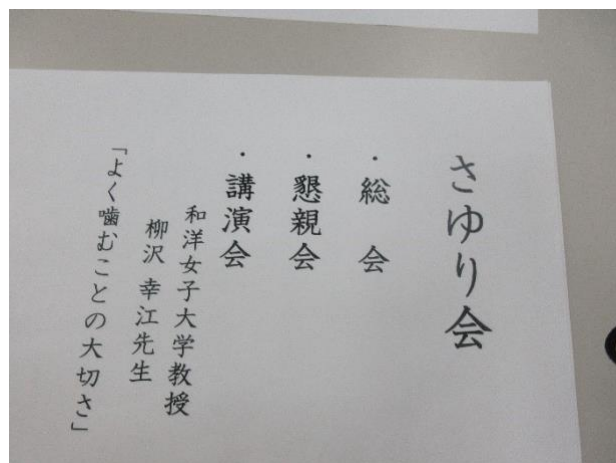 さゆり会
・総　会
・懇親会
・講演会
和洋女子大学教授
柳沢 幸江先生
「よく噛むことの大切さ」